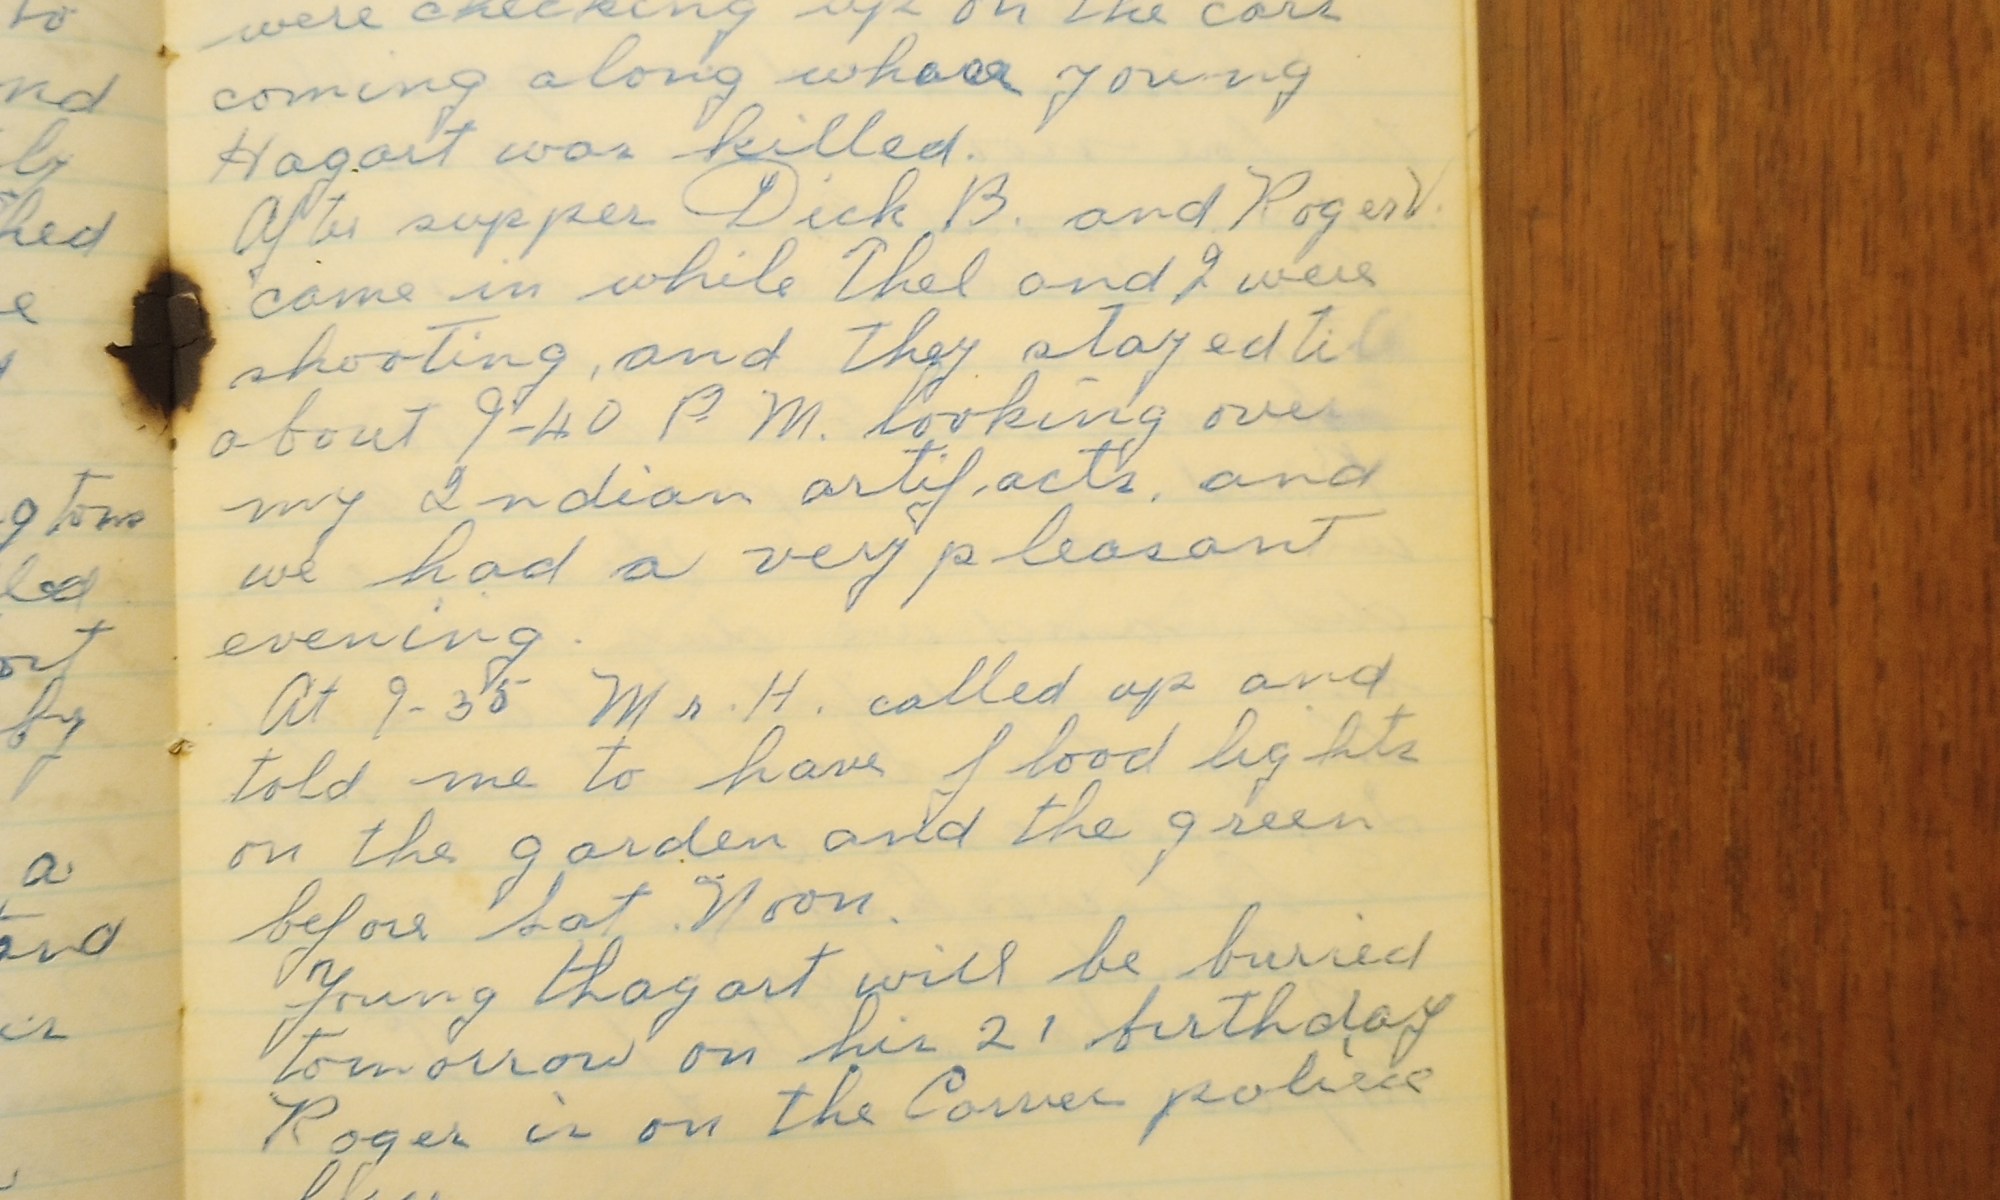 to
nd
ly
hed
e
g tons
led
ort
by
a
and
is
were checking up on the cars
coming along where young
Hagart was killed.
After supper Dick B. and Roger V.
came in while Thel and I were
shooting, and they stayed til
about 9-40 P.M. looking over
my Indian artifacts, and
we had a very pleasant
evening.
At 9-35 Mr. H. called up and
told me to have flood lights
on the garden and the green
before Sat. Noon.
Young Hagart will be buried
tomorrow on his 21 birthday
Roger is on the police